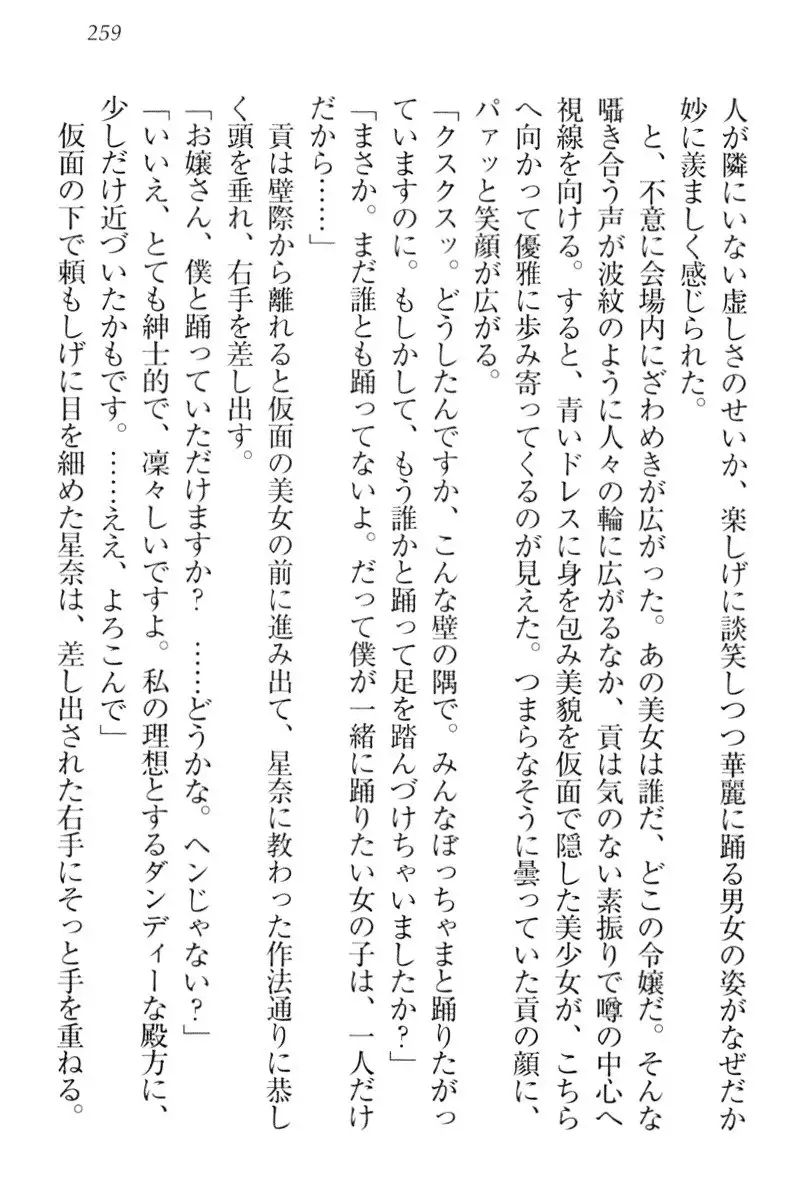 259
人が隣にいない虚しさのせいか、楽しげに談笑しつつ華麗に踊る男女の姿がなぜだか
妙に羨ましく感じられた。
と、不意に会場内にざわめきが広がった。あの美女は誰だ、どこの令嬢だ。そんな
囁き合う声が波紋のように人々の輪に広がるなか、貢は気のない素振りで噂の中心へ
視線を向ける。すると、青いドレスに身を包み美貌を仮面で隠した美少女が、こちら
へ向かって優雅に歩み寄ってくるのが見えた。つまらなそうに曇っていた貢の顔に、
パァッと笑顔が広がる。
「クスクスッ。どうしたんですか、こんな壁の隅で。みんなぼっちゃまと踊りたがっ
ていますのに。もしかして、もう誰かと踊って足を踏んづけちゃいましたか?」
「まさか。まだ誰とも踊ってないよ。だって僕が一緒に踊りたい女の子は、一人だけ
だから……」
貢は壁際から離れると仮面の美女の前に進み出て、星奈に教わった作法通りに恭し
く頭を垂れ、右手を差し出す。
「お嬢さん、僕と踊っていただけますか? ……どうかな。ヘンじゃない?」
「いいえ、とても紳士的で、凛々しいですよ。私の理想とするダンディーな殿方に、
少しだけ近づいたかもです。……ええ、よろこんで」
仮面の下で頼もしげに目を細めた星奈は、差し出された右手にそっと手を重ねる。